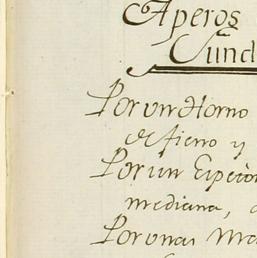 Aperos
Fund
Por un Horno
de fierro y
Por un
mediana,
Por unas